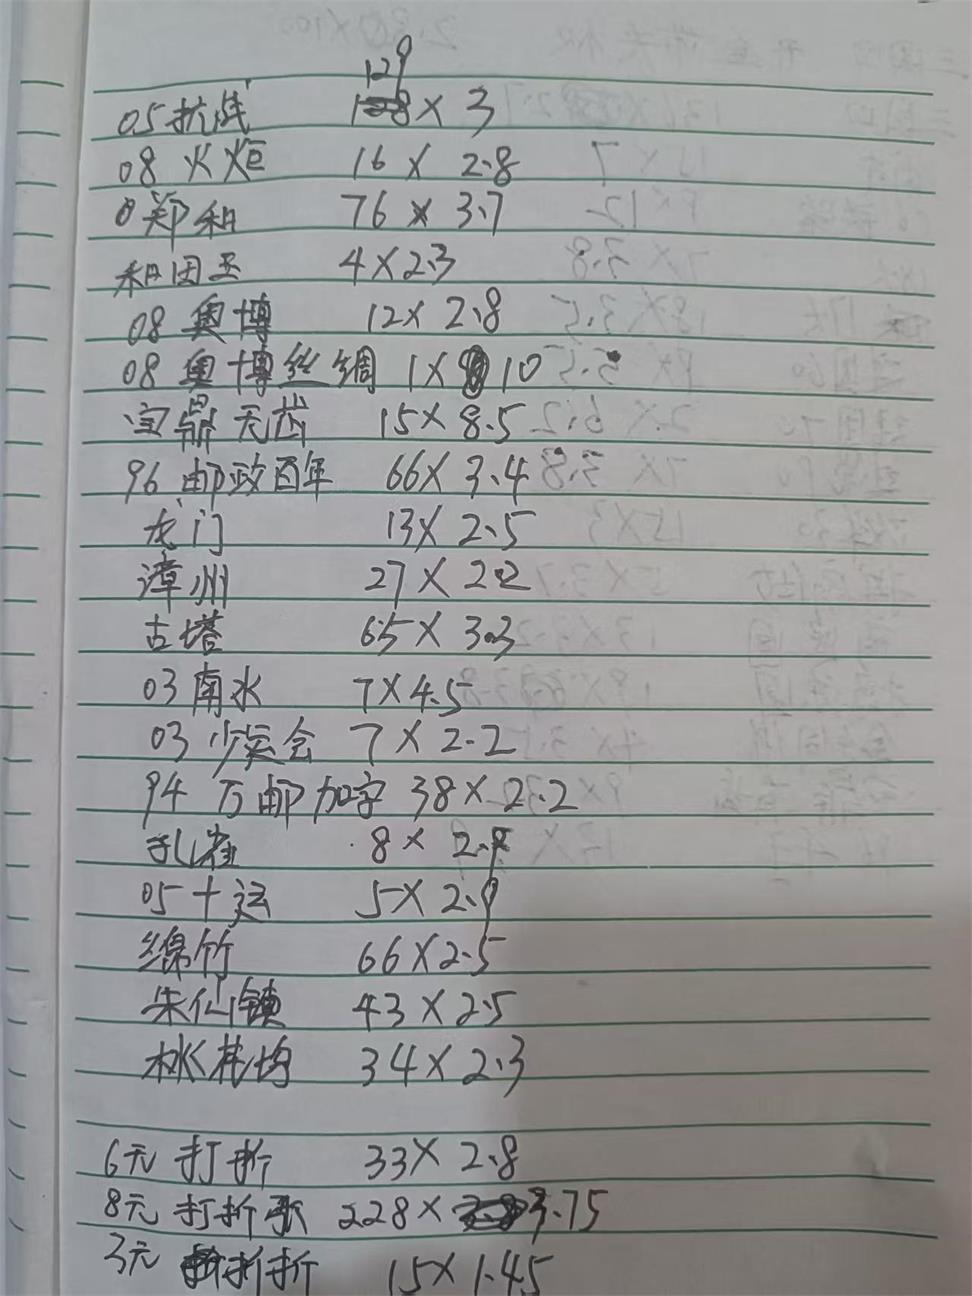 129
05抗战 128 × 3
08 火炬 16 × 2.8
郑和 76 × 3.7
和田玉 4 × 2.3
08 奥博 12 × 2.8
08 奥博丝绸 1 × 10
宝鼎无齿 15 × 8.5
96 邮政百年 66 × 3.4
龙门 13 × 2.5
漳州 27 × 2.2
古塔 65 × 3.3
03 南水 7 × 4.5
03 少运会 7 × 2.2
94 万邮加字 38 × 2.2
孔雀 8 ×
05十运 5 × 2.9
绵竹 66 × 2.5
朱仙镇 43 × 2.5
桃花坞 34 × 2.3
6元 打折 33 × 2.8
8元 打折 228 × 3.75
3元 折 15 × 1.45